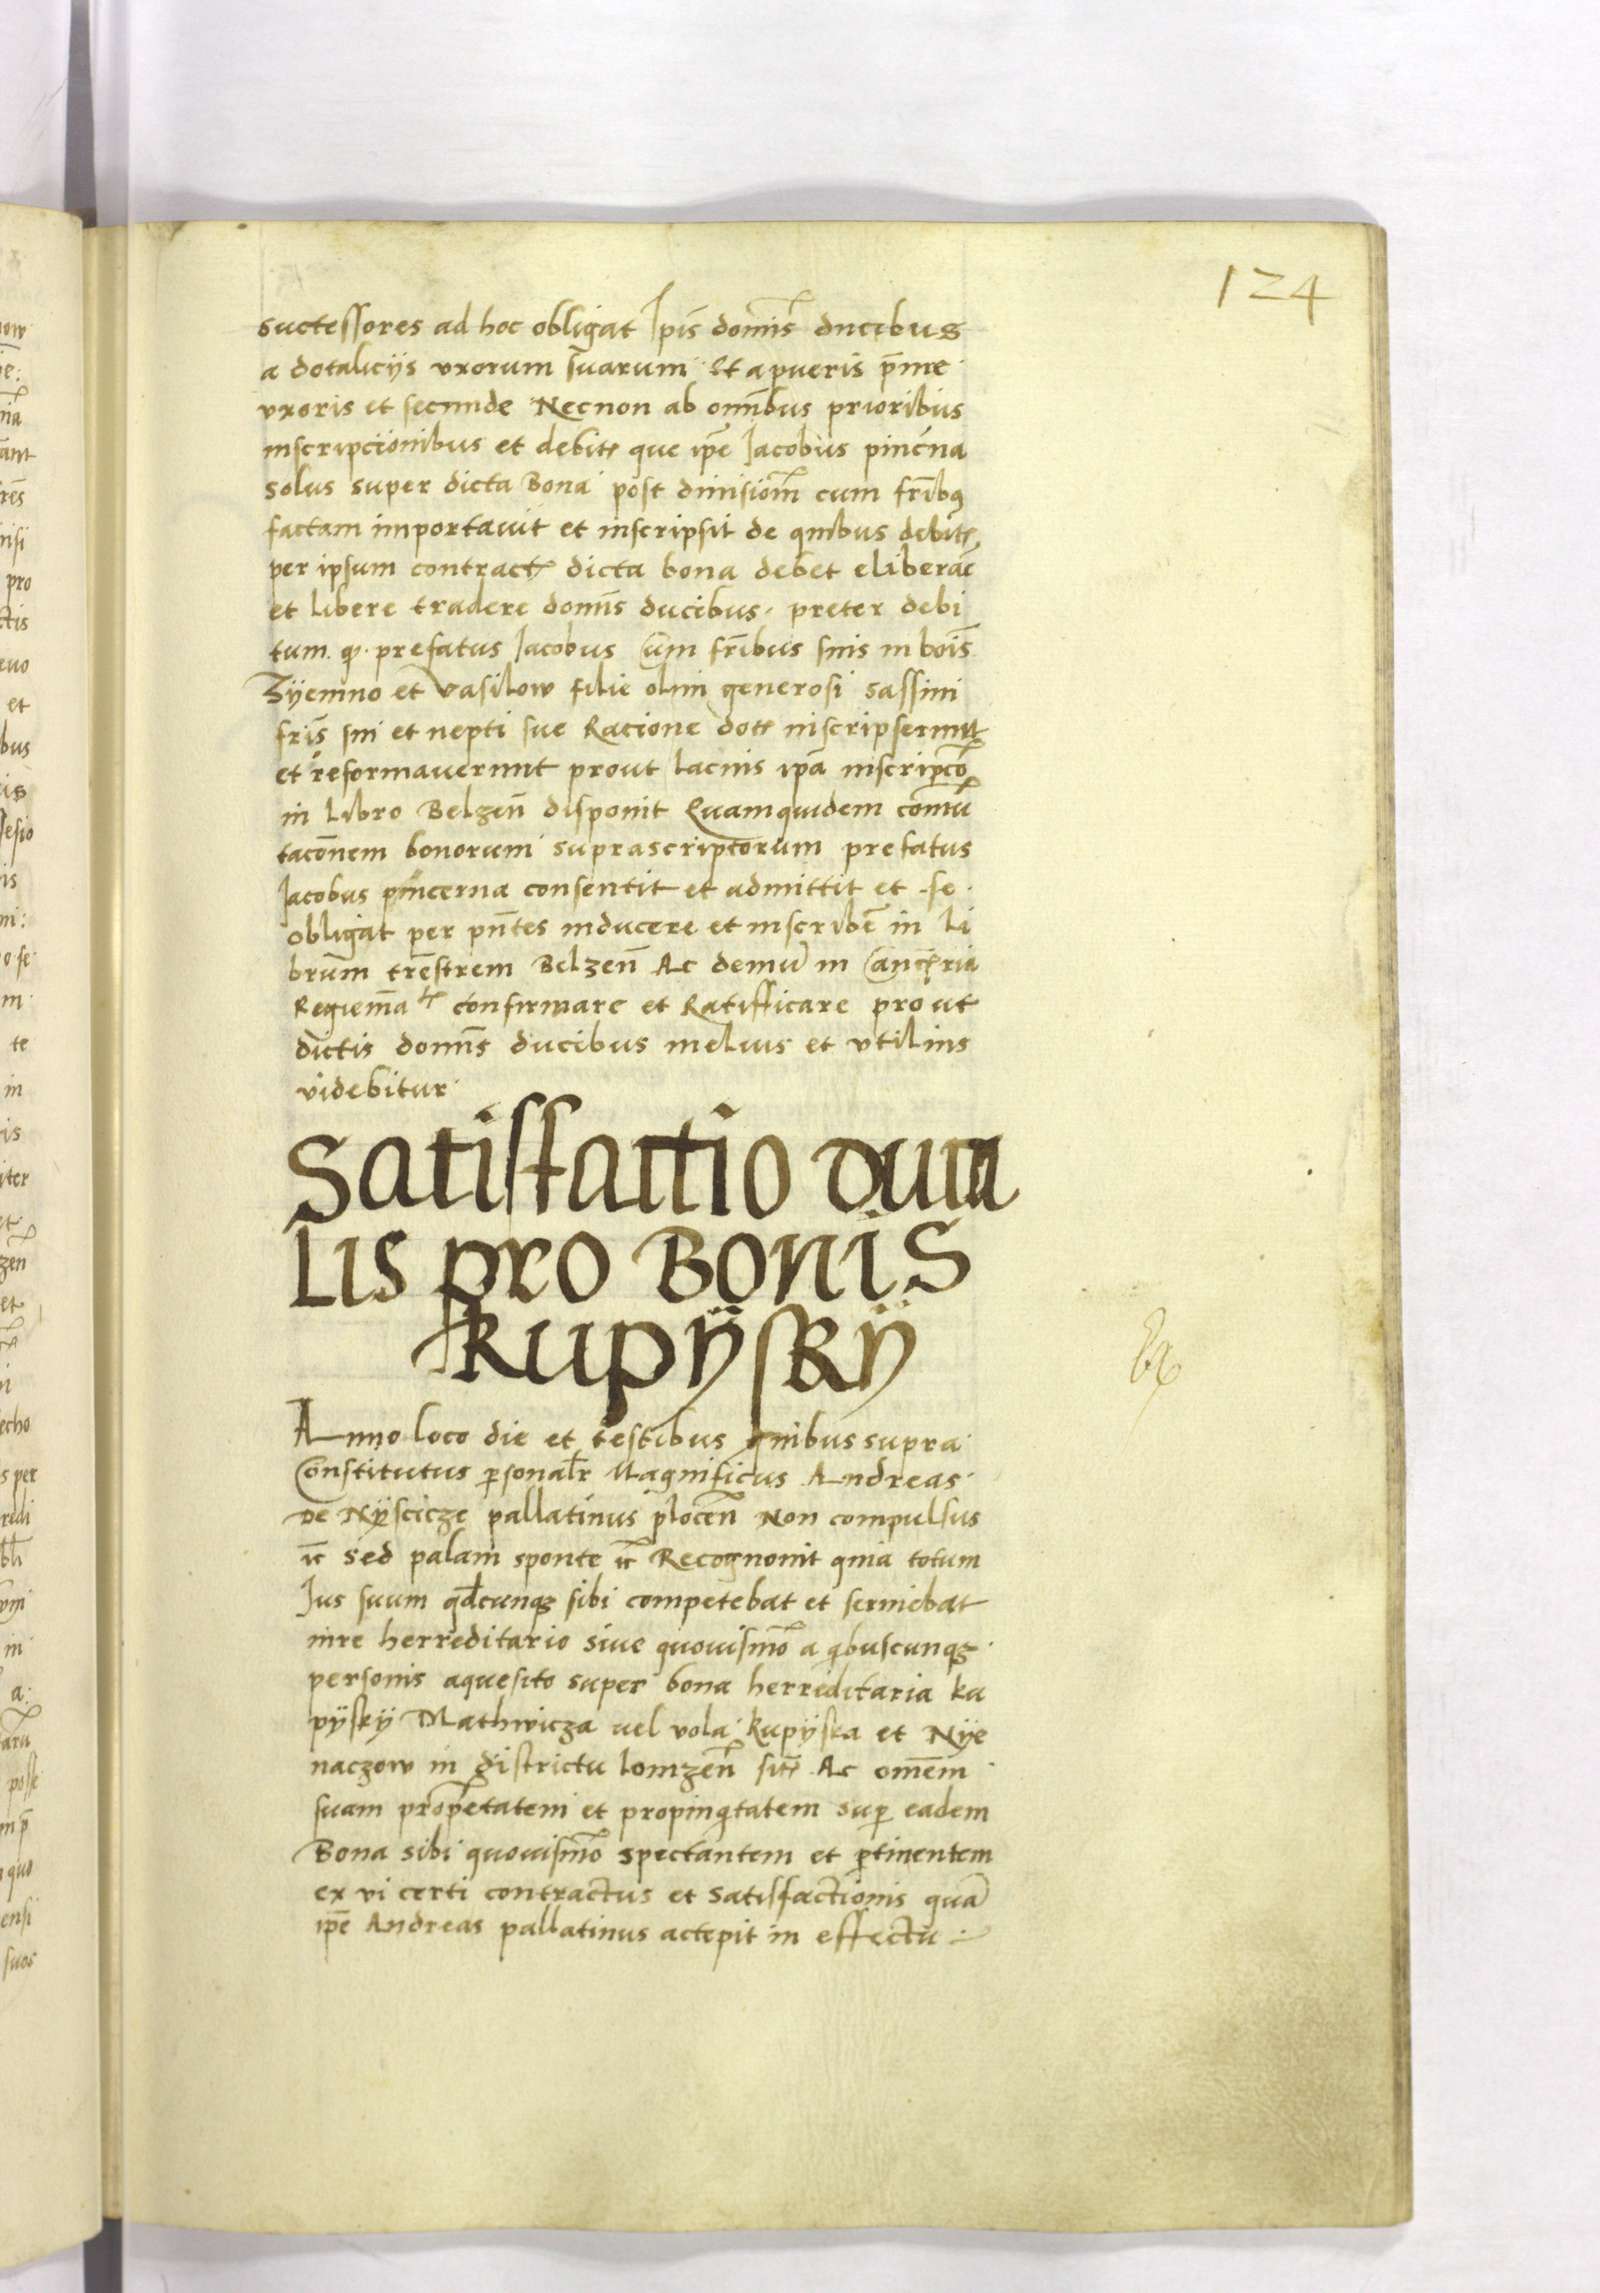 124
successores ad hoc obligat Ipīs domīs ducibus
a dotalicijs vxorum suarum Et a pueris p̄me
vxoris et secunde Necnon ab omībus prioribus
inscripcionibus et debit͛ que ip̄e Iacobus pinc̄na
solus super dicta Bona post diuisiom̄ cum fr̄ibꝫ
factam importauit et inscripsit de quibus debit͛
per ipsum contract͛ dicta bona debet eliberar̄e
et libere tradere domīs ducibus. preter debi
tum. qḏ. prefatus Iacobus Cum fr̄ibus suis in boīs
Zÿemno et Vasilow filie olim generosi Sassini
fr̄is sui et nepti sue Racione dot͛ inscripserunt
et reformauerunt prout lacius ipā inscripc̄o
in Libro Belzen̄ disponit Quamquidem com̄u
tac̄onem bonorum suprascriptorum prefatus
Iacobus pincerna consentit et admittit et .se.
obligat per pn̄tes inducere et inscriber̄e in Li
brum tr̄estrem Belzen̄ Ac demū in Cancell̄ria
Regiem̄a͛t͛ confirmare et Ratifficare pro ut
dictis domīs ducibus melius et vtilius
videbitur
Satisfactio duca
lis pro Bonis
kupÿskÿ
Anno loco die et testibus quibus supra
Constitutus personalr̄ Magnificus Andreas
De Nÿscicze pallatinus plocen̄ Non compulsus
ꝛc̄ Sed palam sponte ꝛc̄ Recognouit quia totum
Ius suum qd̄cunqꝫ sibi competebat et seruiebat
iure herreditario siue quouismō a qibuscunqꝫ
personis aquesito super bona herreditaria ku
pÿskÿ Mathwicza uel vola kupÿska et Nÿe
naczow in districtu lomzen̄ sit͛ Ac om̄em
suam prop̄etatem et propinqitatem sup̱ eadem
Bona sibi quouismō spectantem et p̱tinentem
ex vi certi contractus et satisfactionis quā
ip̄e Andreas pallatinus accepit in effectu